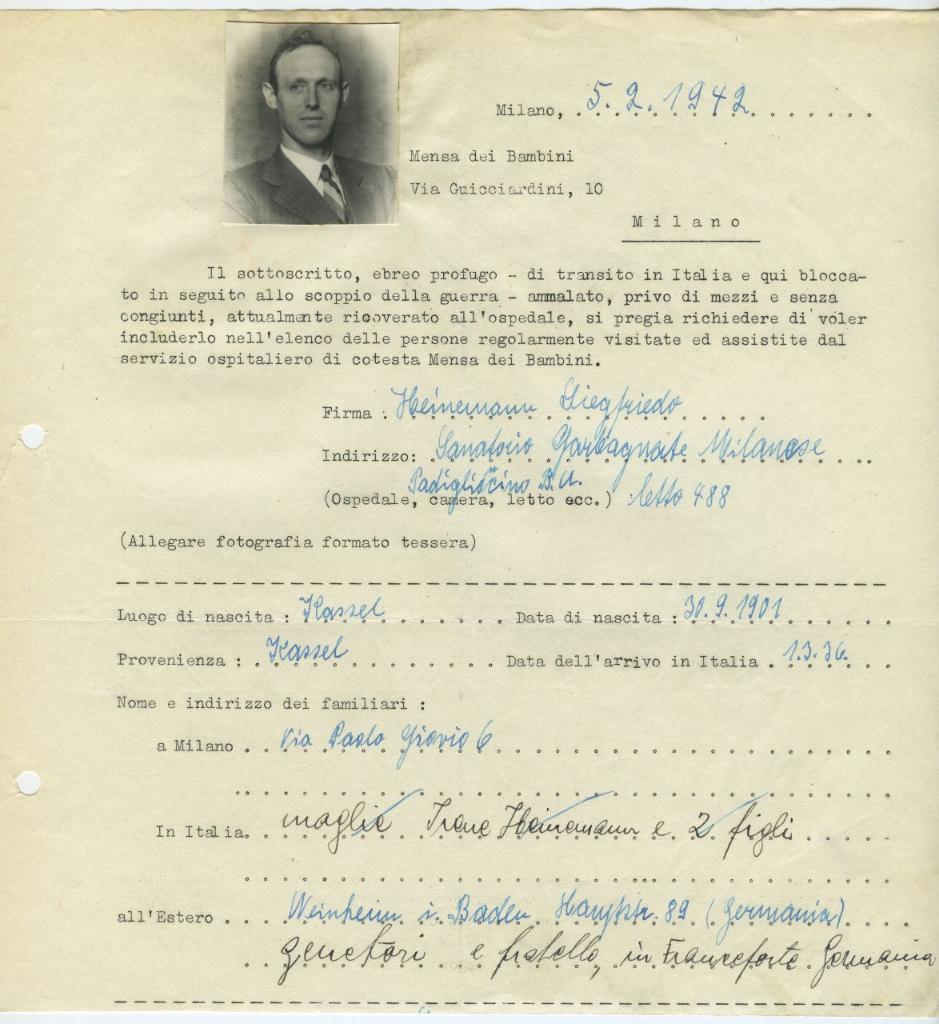 Milano, 5.2.1942
Mensa dei Bambini
Via Guicciardini, 10
Milano
Il sottoscritto, ebreo profugo - di transito in Italia e qui blocca-
to in seguito allo scoppio della guerra - ammalato, privo di mezzi e senza
congiunti, attualmente ricoverato all'ospedale, si pregia richiedere di voler
includerlo nell'elenco delle persone regolarmente visitate ed assistite dal
servizio ospitaliero di cotesta Mensa dei Bambini.
Firma : Heinemann Siegfriedo
Indirizzo: Sanatorio Garbagnate Milanese
B.U.
(Ospedale, camera, letto ecc.) letto 488
(Allegare fotografia formato tessera)
Luogo di nascita : Kassel Data di nascita : 30.9.1901
Provenienza : Kassel Data dell'arrivo in Italia . 1.3.36.
Nome e indirizzo dei familiari :
a Milano . . Via Paolo Giovio 6
In Italia. . moglie Irene Heinemann e 2 figli
all'Estero . . . Weinheim i. Baden Hauptstr. 89 (Germania)
genetori e fratello, in Francoforte Germania